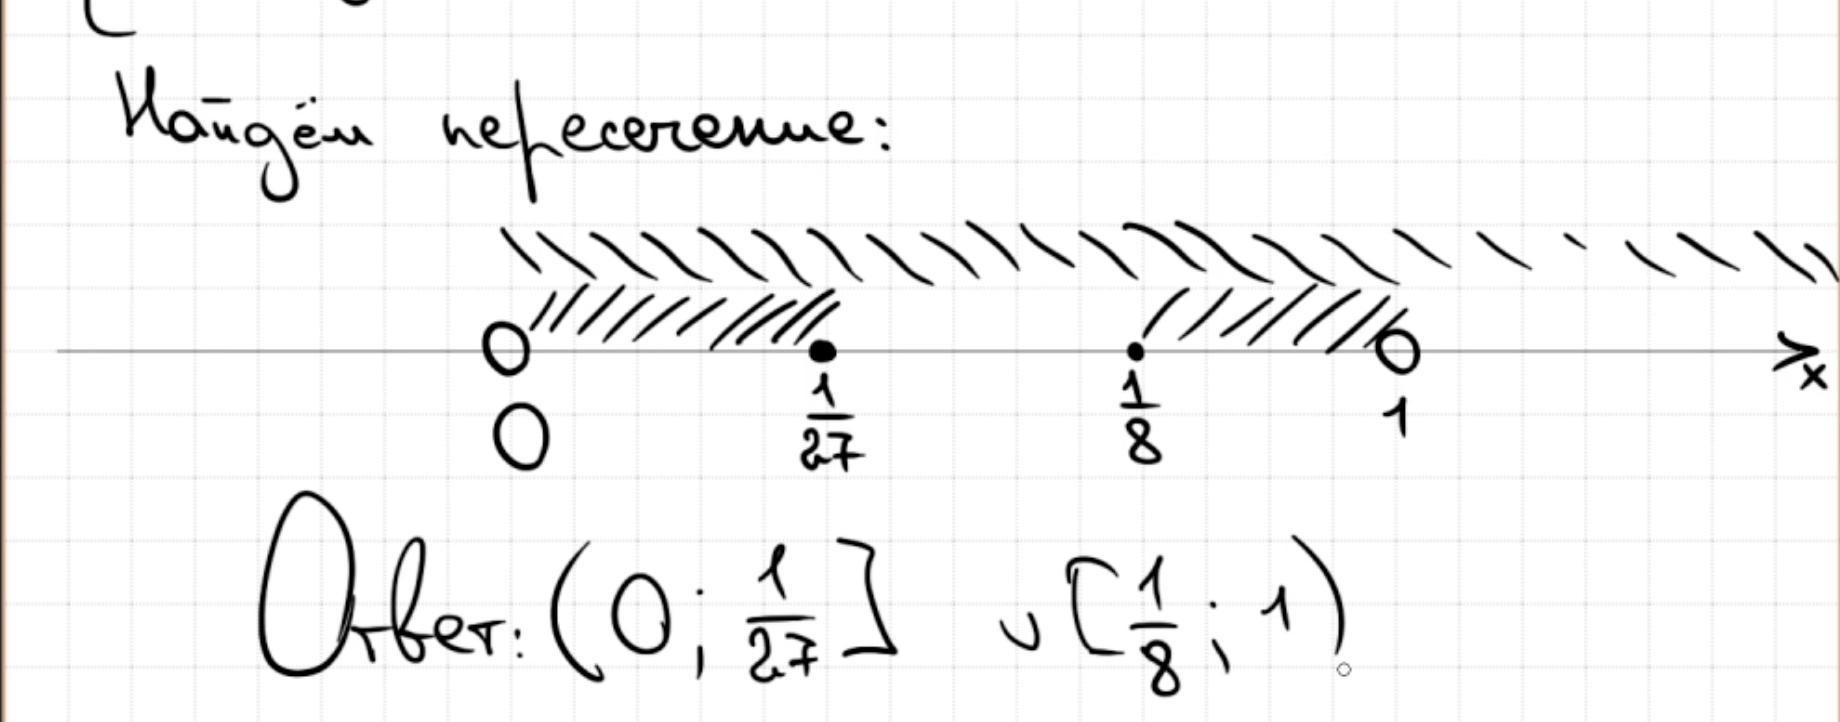 Найдём пересечение:
0 1/27 1/8 1 x
Ответ: (0; 1/27] ∪ [1/8; 1)